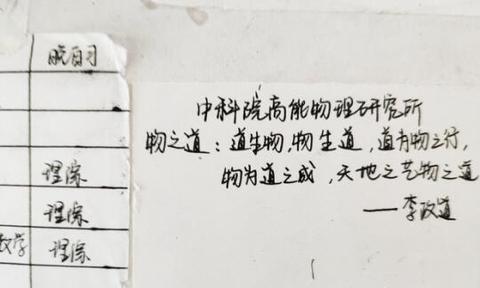 晚自习
理综
理综
数学 理综
中科院高能物理研究所
物之道：道生物,物生道，道为物之行,
物为道之成，天地之艺物之道
——李政道